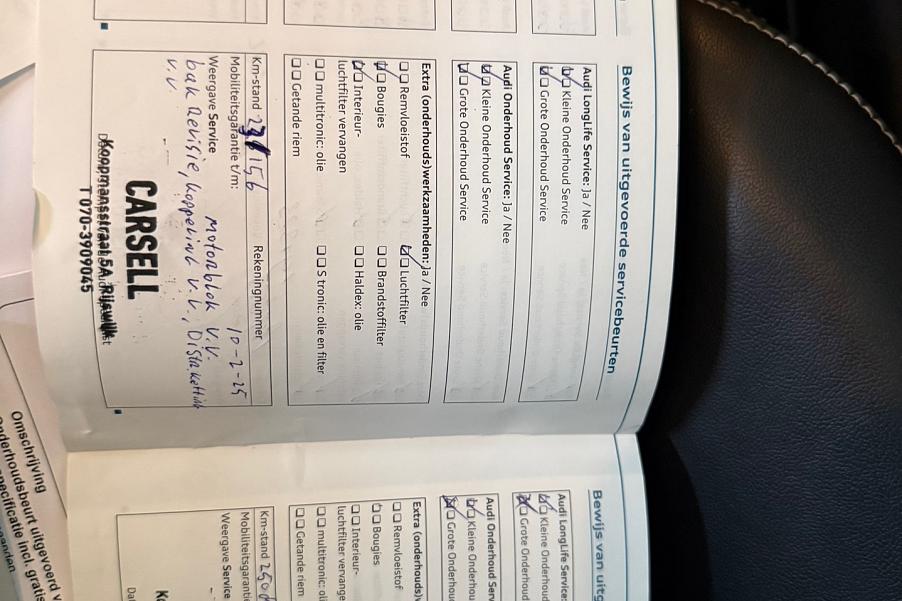 Bewijs van uitgevoerde servicebeurten
Audi LongLife Service: Ja / Nee
Kleine Onderhoud Service
Grote Onderhoud Service
Audi Onderhoud Service: Ja / Nee
Kleine Onderhoud Service
Grote Onderhoud Service
Extra (onderhouds)werkzaamheden: Ja / Nee
Remvloeistof
Luchtfilter
Bougies
Brandstoffilter
Interieur-
luchtfilter vervangen
Haldex: olie
multitronic: olie
S tronic: olie en filter
Getande riem
Km-stand
Rekeningnummer
Mobiliteitsgarantie t/m:
10-2-25
Weergave Service
Motorblok V.V.
bak Revisie, koppeling V.V., Dist. ketting
V.V
CARSELL
Koopmansstraat 5A Rijswijk
T 070-3909045
Bewijs van uitg
Audi LongLife Service:
Kleine Onderhoud
Grote Onderhoud
Audi Onderhoud Serv
Kleine Onderhou
Grote Onderhou
Extra (onderhouds)
Remvloeistof
Bougies
Interieur-
luchtfilter vervange
multitronic: ol
Getande riem
Km-stand
Mobiliteitsgaranti
Weergave Service
Omschrijving
onderhoudsbeurt uitgevoerd v
specificatie incl. gratis